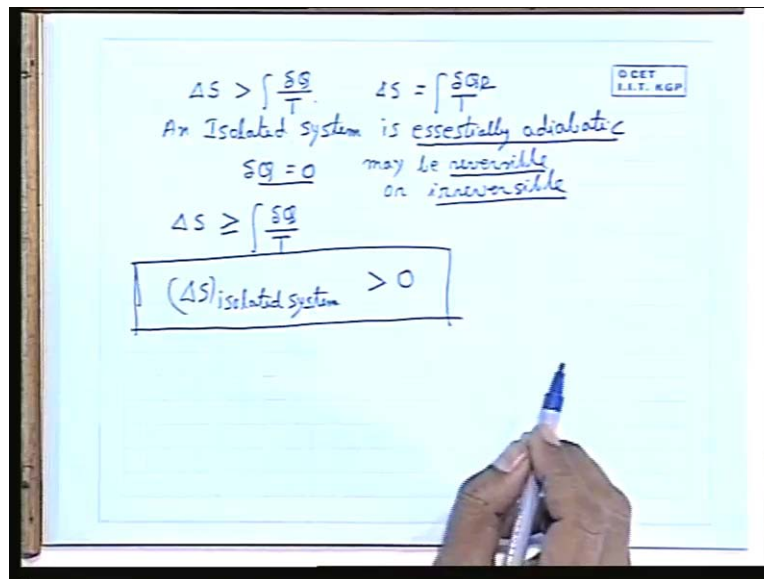 ΔS > ∫ δQ/T. ΔS = ∫ δQR/T
O CET
I.I.T. KGP
An Isolated system is essestially adiabatic
δQ = 0 may be reversible
or irreversible
ΔS ≥ ∫ δQ/T
(ΔS)isolated system > 0